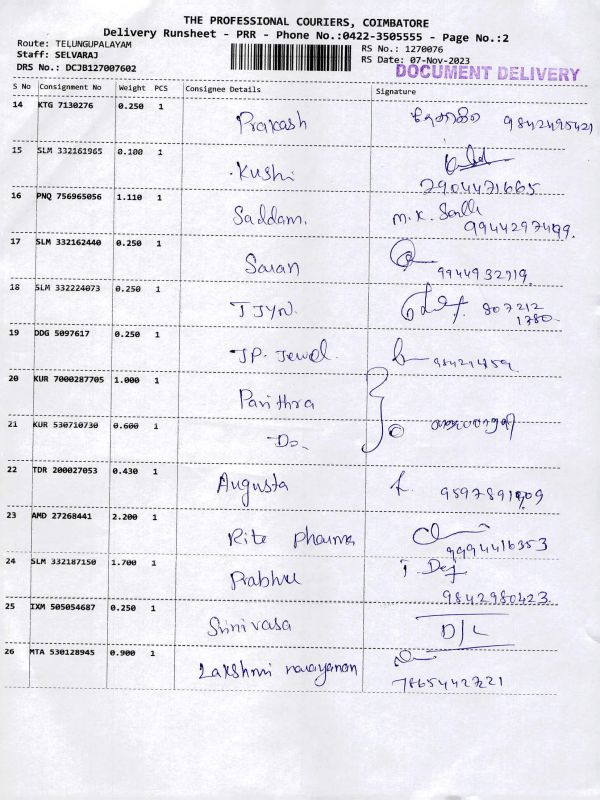 THE PROFESSIONAL COURIERS, COIMBATORE
Delivery Runsheet - PRR - Phone No.:0422-3505555 - Page No.:2
Route: TELUNGUPALAYAM RS No.: 1270076
Staff: SELVARAJ RS Date: 07-Nov-2023
DRS No.: DCJB127007602 DOCUMENT DELIVERY
S No Consignment No Weight PCS Consignee Details Signature
14 KTG 7130276 0.250 1 Prakash 9842495421
15 SLM 332161965 0.100 1 Kushi
7904471665
16 PNQ 756965056 1.110 1 Saddam. M.K.
9944297499.
17 SLM 332162440 0.250 1 Saran
9944932919.
18 SLM 332224073 0.250 1 TJYN. 807212
1780.
19 DDG 5097617 0.250 1 JP. Jewel.
20 KUR 7000287705 1.000 1 Pavithra
21 KUR 530710730 0.600 1 Do.
22 TDR 200027053 0.430 1 Augusta
23 AMD 27268441 2.200 1 Rite pharma
9994416353
24 SLM 332187150 1.700 1 Prabhu
9842980423
25 IXM 505054687 0.250 1 Srinivasa D/L
26 MTA 530128945 0.900 1 Lakshmi narayanan